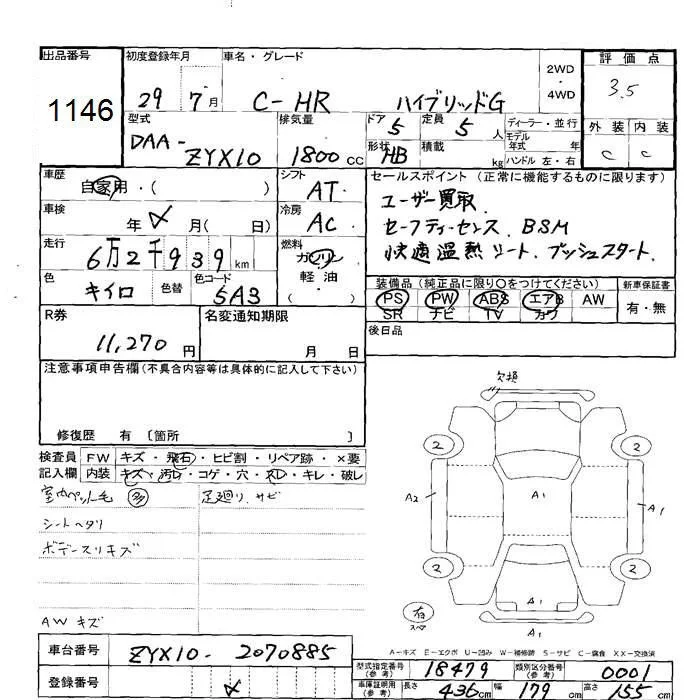 出品番号 1146
初度登録年月 29年 7月
車名・グレード C-HR ハイブリッドG
2WD・4WD
評価点 3.5
型式 DAA-ZYX10
排気量 1800 CC
ドア 5
定員 5 人
ディーラー・並行
モデル年式 年
形状 HB
積載 kg
ハンドル 左・右
外装 C
内装 C
車歴 自家用・( )
シフト AT
セールスポイント (正常に機能するものに限ります)
ユーザー買取
セーフティーセンス. BSM
快適温熱シート. プッシュスタート.
車検 年 月( 日)
冷房 AC
走行 6万2千939 km
燃料 ガソリン 軽油 ( )
色 キイロ
色替
色コード 5A3
装備品 (純正品に限り○をつけてください)
PS PW ABS エアB AW
SR ナビ TV カワ
新車保証書 有・無
R券 11,270 円
名変通知期限 月 日
後日品
注意事項申告欄 (不具合内容等は具体的に記入して下さい)
修復歴 有 〔箇所 〕
検査員記入欄
FW キズ・飛石・ヒビ割・リペア跡・×要
内装 キズ・汚レ・コゲ・穴・スレ・キレ・破レ
室内ペット毛 多
足廻り.サビ
シートヘタリ
ボデースリキズ
AWキズ
欠損
2 2
A2 A1 A1
2 2
A1
有 スペア
A1
A-キズ E-エクボ U-凹み W-補修跡 S-サビ C-腐食 XX-交換済
車台番号 ZYX10-2070885
登録番号
型式指定番号 (参考) 18479
類別区分番号 (参考) 0001
車庫証明用 (参考) 長さ 436 cm 幅 179 cm 高さ 155 cm